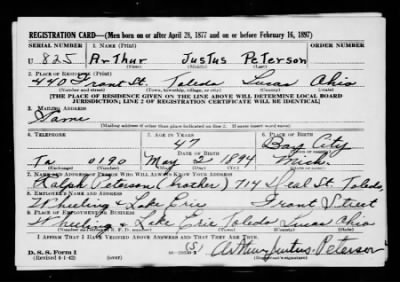 REGISTRATION CARD—(Men born on or after April 28, 1877 and on or before February 16, 1897)
SERIAL NUMBER 1. NAME (Print)
U 825 Arthur Justus Peterson
(First) (Middle) (Last)
2. PLACE OF RESIDENCE (Print)
440 Front St. Toledo Lucas Ohio
(Number and street) (Town, township, village, or city) (County) (State)
[THE PLACE OF RESIDENCE GIVEN ON THE LINE ABOVE WILL DETERMINE LOCAL BOARD
JURISDICTION; LINE 2 OF REGISTRATION CERTIFICATE WILL BE IDENTICAL]
3. MAILING ADDRESS
Same
[Mailing address if other than place indicated on line 2. If same insert word same]
4. TELEPHONE 5. AGE IN YEARS 6. PLACE OF BIRTH
47 Bay City
DATE OF BIRTH (Town or county)
Ta 0190 May 2 1894 Mich.
(Exchange) (Number) (Mo.) (Day) (Yr.) (State or country)
7. NAME AND ADDRESS OF PERSON WHO WILL ALWAYS KNOW YOUR ADDRESS
Ralph Peterson (brother) 714 St. Toledo,
8. EMPLOYER'S NAME AND ADDRESS
Wheeling & Lake Erie Front Street
9. PLACE OF EMPLOYMENT OR BUSINESS
Wheeling & Lake Erie Toledo Lucas Ohio
(Number and street or R. F. D. number) (Town) (County) (State)
I AFFIRM THAT I HAVE VERIFIED ABOVE ANSWERS AND THAT THEY ARE TRUE.
D. S. S. Form 1
(Revised 4-1-42) (over) (S) Arthur Justus Peterson